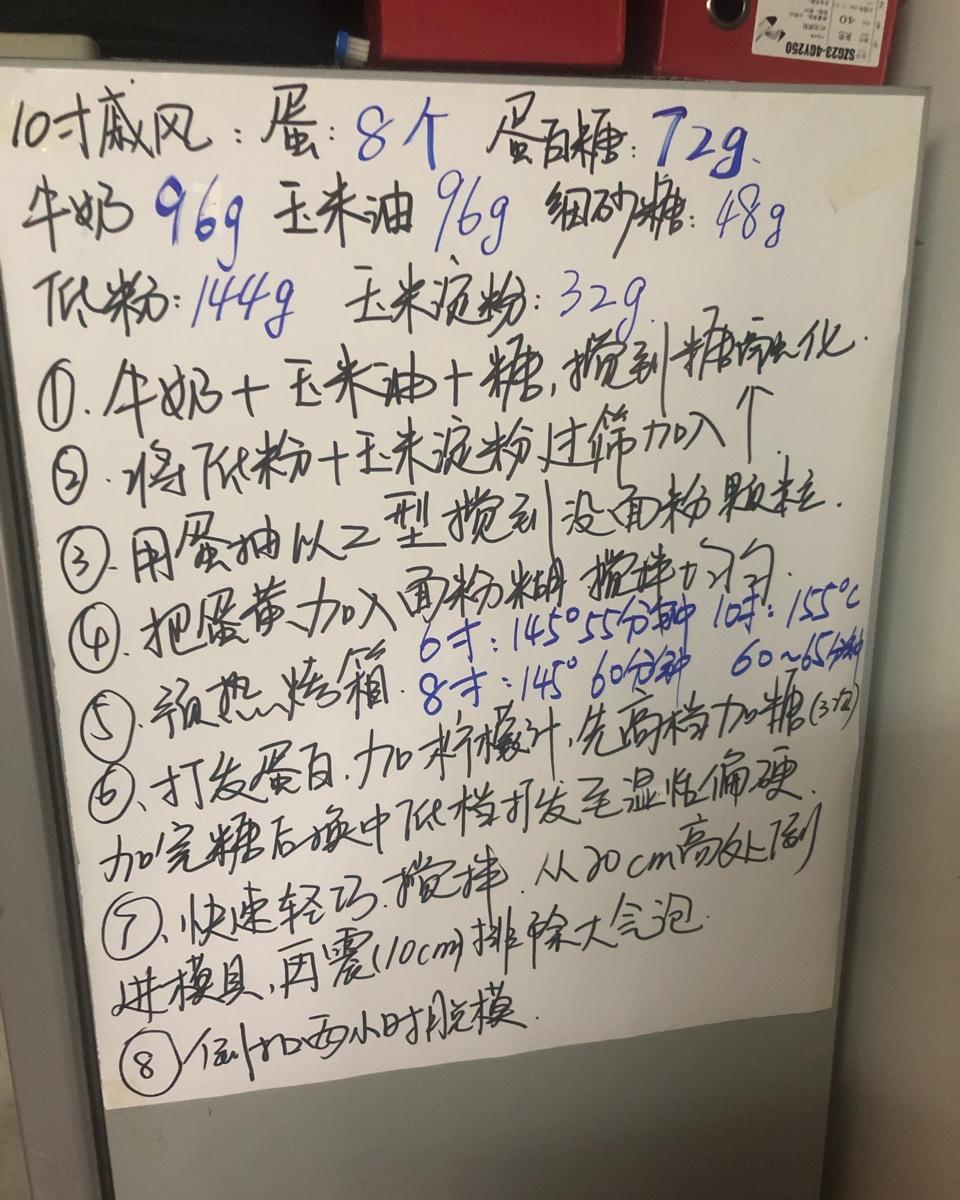 SZG23-4GY250
40
10寸戚风：蛋：8个 蛋白糖：72g.
牛奶 96g 玉米油 96g 细砂糖：48g
低粉：144g 玉米淀粉：32g.
①. 牛奶+玉米油+糖，搅到糖融化.
②. 将低粉+玉米淀粉过筛加入↑.
③. 用蛋抽以Z型搅到没面粉颗粒.
④. 把蛋黄加入面粉糊搅拌均匀.
6寸：145°55分钟 10寸：155°C
⑤. 预热烤箱. 8寸：145° 60分钟 60~65分钟
⑥、打发蛋白，加柠檬汁，先高档加糖(3次)
加完糖后换中低档打发至湿性偏硬.
⑦、快速轻巧搅拌. 从20cm高处倒
进模具，再震(10cm)排除大气泡.
⑧ 倒扣两小时脱模.